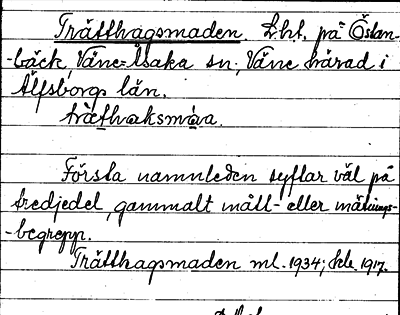 Trätthagsmaden. Lht. på Östan-
-bäck, Väne=Åsaka sn; Väne härad i
Älfsborgs län.
träthaksmáva.
Första namnleden syftar väl på
tredjedel, gammalt mått- eller mätnings-
-begrepp.
Trätthagsmaden ml. 1934; kle 1917.